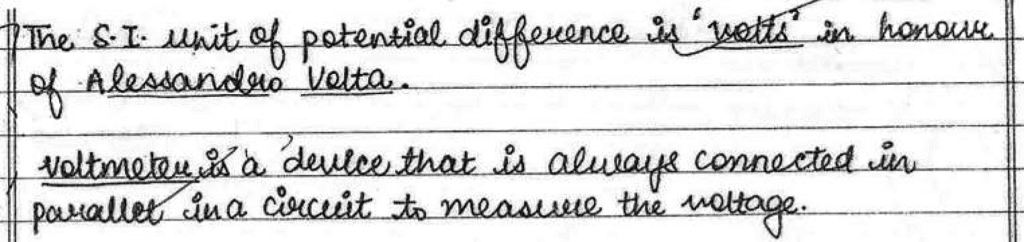 The S.I. unit of potential difference is 'volts' in honour
of Alessandro Volta.
voltmeter is a device that is always connected in
parallel in a circuit to measure the voltage.